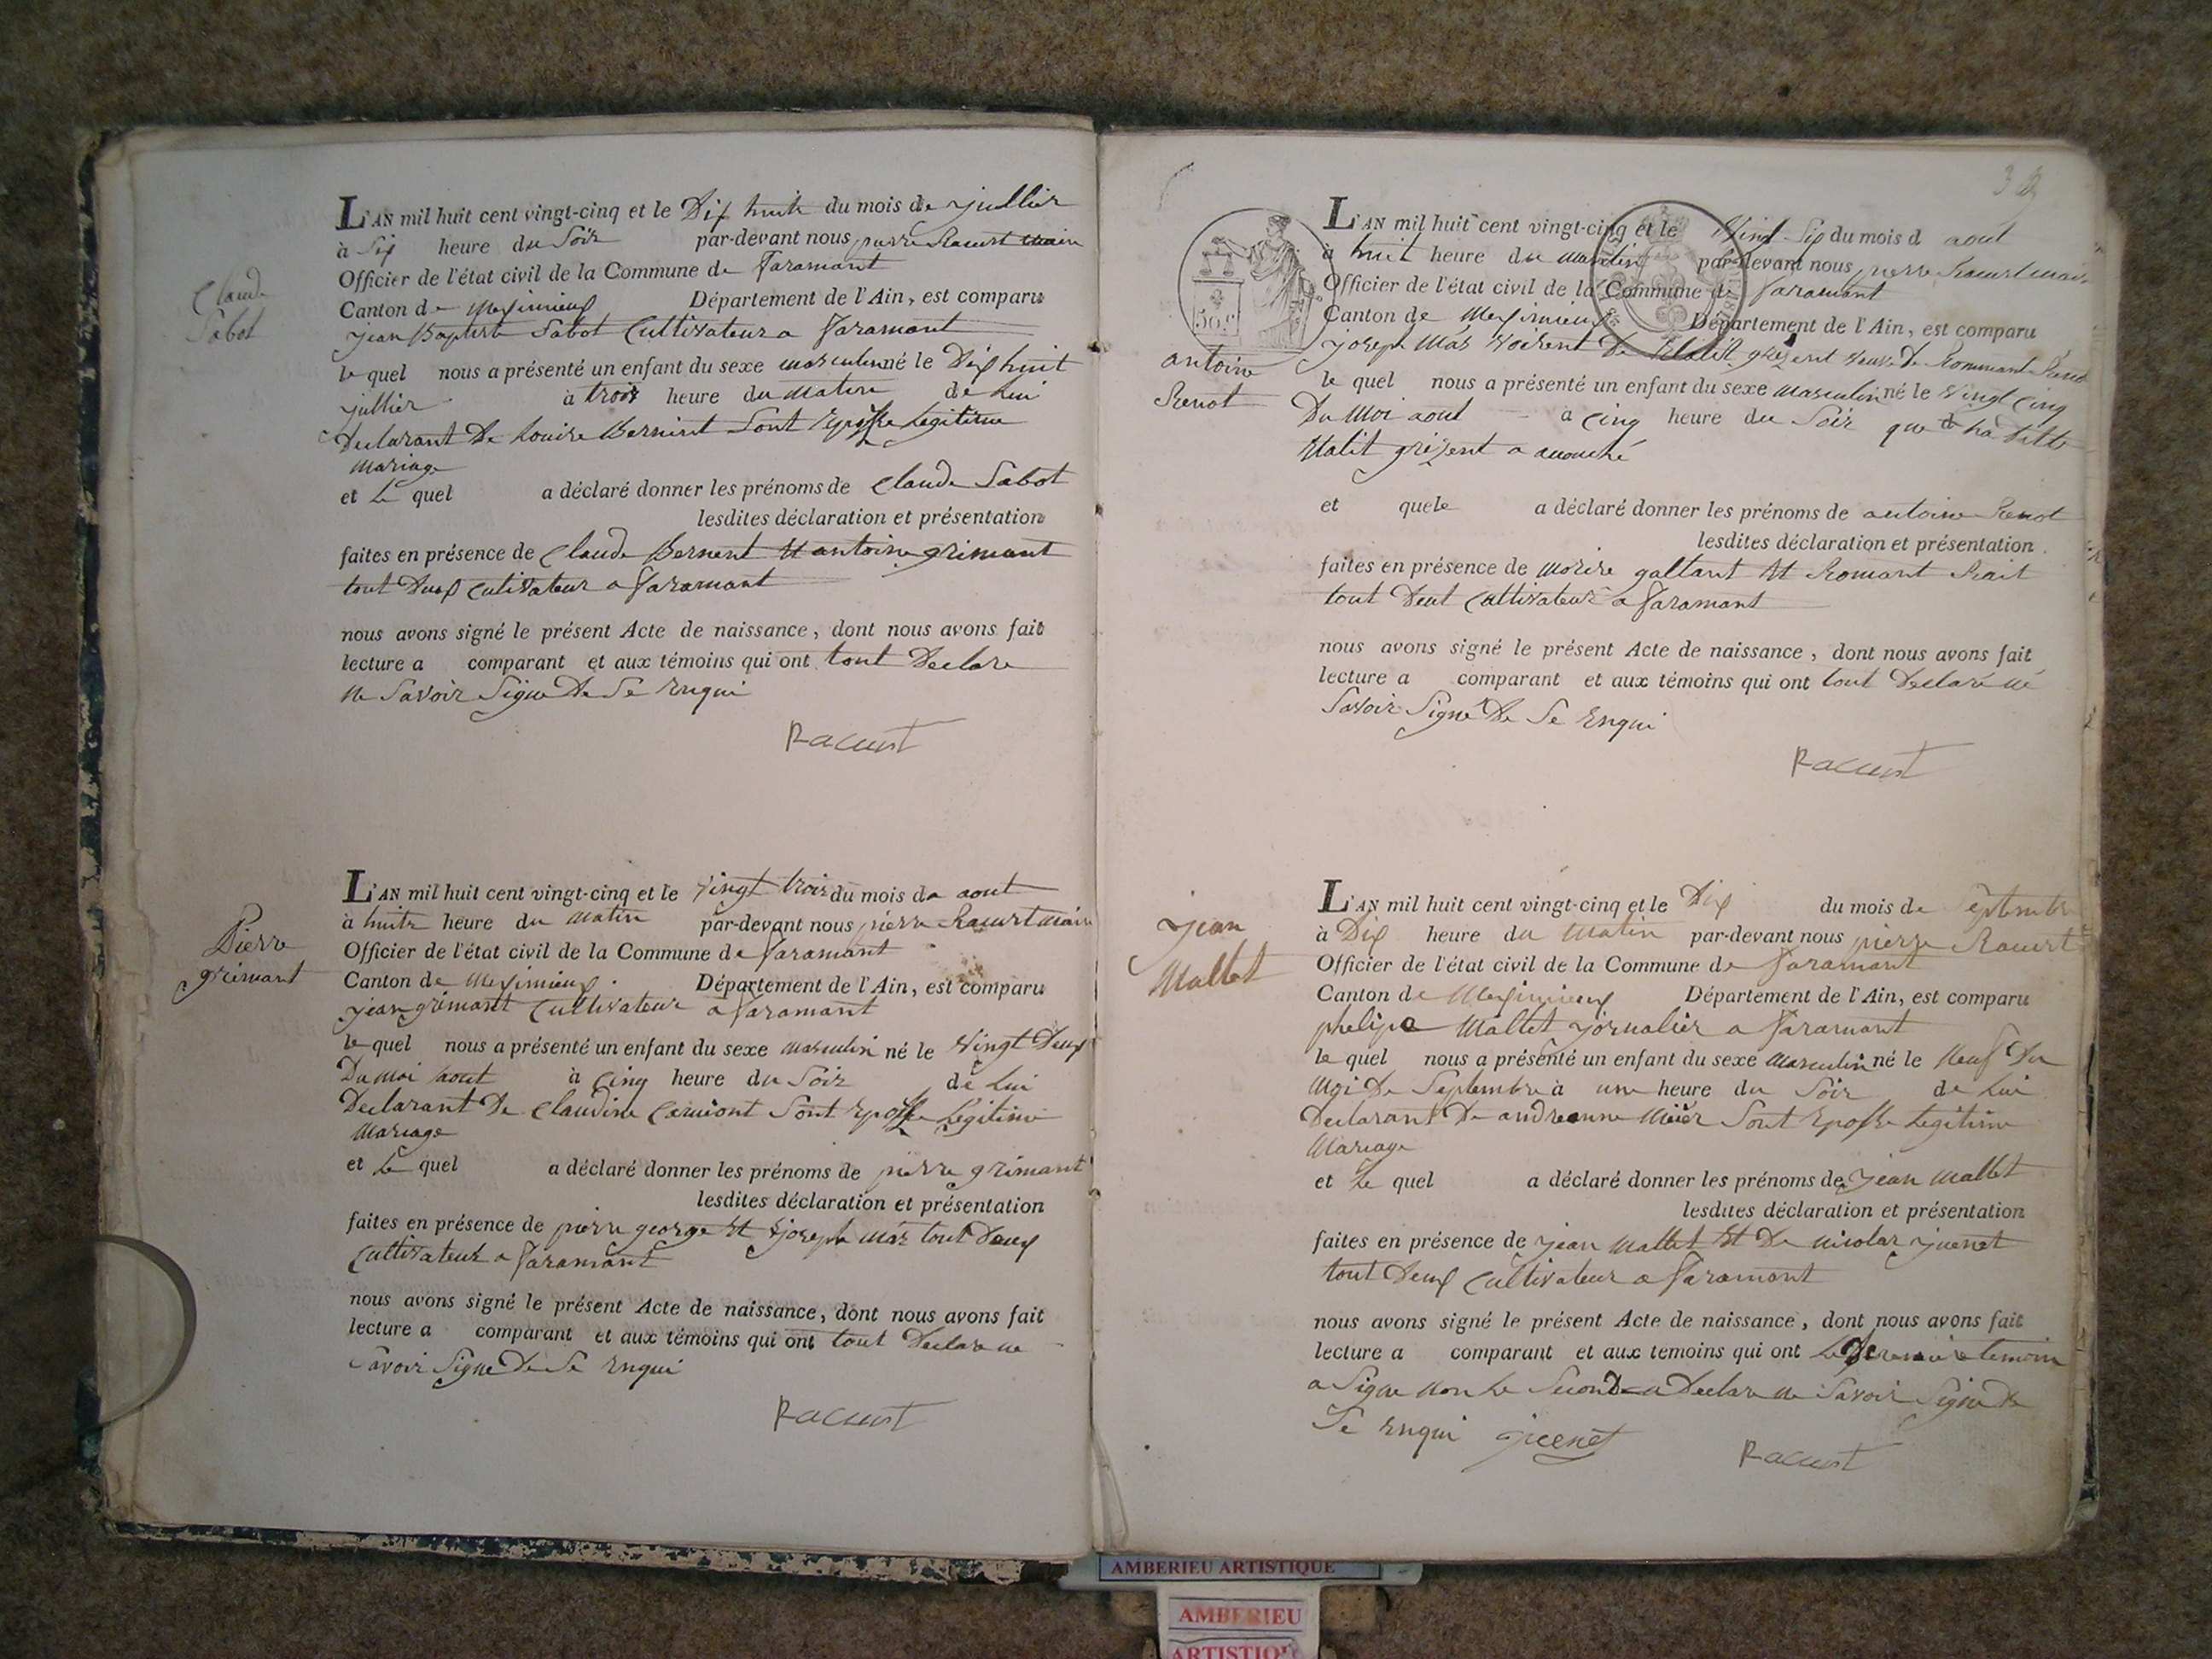 Claude
Sabot
L'AN mil huit cent vingt-cinq et le Dix huit du mois de jullier
à Six heure du Soir par-devant nous pierre Racurt maire
Officier de l'état civil de la Commune de Faramant
Canton de Meximieux Département de l'Ain, est comparu
jean Baptiste Sabot Cultivateur a Faramant
le quel nous a présenté un enfant du sexe masculin né le Dix huit
jullier à trois heure du Matin de Lui
Declarant De Louise Bernint Sont Eposse Legitime
Mariage
et Le quel a déclaré donner les prénoms de Claude Sabot
lesdites déclaration et présentation
faites en présence de Claude Bernent Et antoine grimant
tout Deux Cutivateur a Faramant
nous avons signé le présent Acte de naissance, dont nous avons fait
lecture a comparant et aux témoins qui ont tout Declare
ne Savoir Signe De Se Enqui
Racurt
Pierre
grimant
L'AN mil huit cent vingt-cinq et le Vingt trois du mois da aout
à huite heure du Matin par-devant nous pierre Racurt maire
Officier de l'état civil de la Commune de Faramant
Canton de Meximieux Département de l'Ain, est comparu
jean grimant Cultivateur a Faramant
le quel nous a présenté un enfant du sexe masculin né le Vingt Deux
Du Moi aout à Cinq heure du Soir de Lui
Declarant De Claudine Sont Eposse Legitime
Mariage
et Le quel a déclaré donner les prénoms de pierre grimant
lesdites déclaration et présentation
faites en présence de pierre george Et joseph Mas tout Deux
Cultivateur a Faramant
nous avons signé le présent Acte de naissance, dont nous avons fait
lecture a comparant et aux témoins qui ont tout Declare ne
Savoir Signe De Se Enqui
Racurt
50.c
antoine
Renot
L'AN mil huit cent vingt-cinq et le Vint Six du mois d aout
à huit heure du Mantin par-devant nous pierre Racurt
Officier de l'état civil de la Commune de Faramant
Canton de Meximieux Département de l'Ain, est comparu
joseph Mas De
le quel nous a présenté un enfant du sexe Masculin né le Vingt Cinq
Du Moi aout à Cinq heure du Soir que la ditte
grizent a acouché
et quele a déclaré donner les prénoms de antoine Renot
lesdites déclaration et présentation
faites en présence de galtant Et Romant
tout Deut Cultivateur a Faramant
nous avons signé le présent Acte de naissance, dont nous avons fait
lecture a comparant et aux témoins qui ont tout Declaré né
Savoir Signé De Se Enqui
Racurt
jean
Mallet
L'AN mil huit cent vingt-cinq et le Dix du mois de Septembre
à Dix heure du Matin par-devant nous pierre Racurt
Officier de l'état civil de la Commune de Faramant
Canton de Meximieux Département de l'Ain, est comparu
phelipe Mallet jornalier a Faramant
le quel nous a présenté un enfant du sexe Masculin né le Neuf Du
Moi De Septembre à une heure du Soir de Lui
Declarant De andreanne Sont Eposse Legitime
Mariage
et Le quel a déclaré donner les prénoms de jean Mallet
lesdites déclaration et présentation
faites en présence de jean Mallet Et De nicolas juenet
tout Deux Cultivateur a Faramant
nous avons signé le présent Acte de naissance, dont nous avons fait
lecture a comparant et aux temoins qui ont Le temoin
a Signe non Le Second a Declare ne Savoir Signe De
Se Enqui juenet
Racurt
AMBERIEU ARTISTIQUE
AMBERIEU
ARTISTIQUE